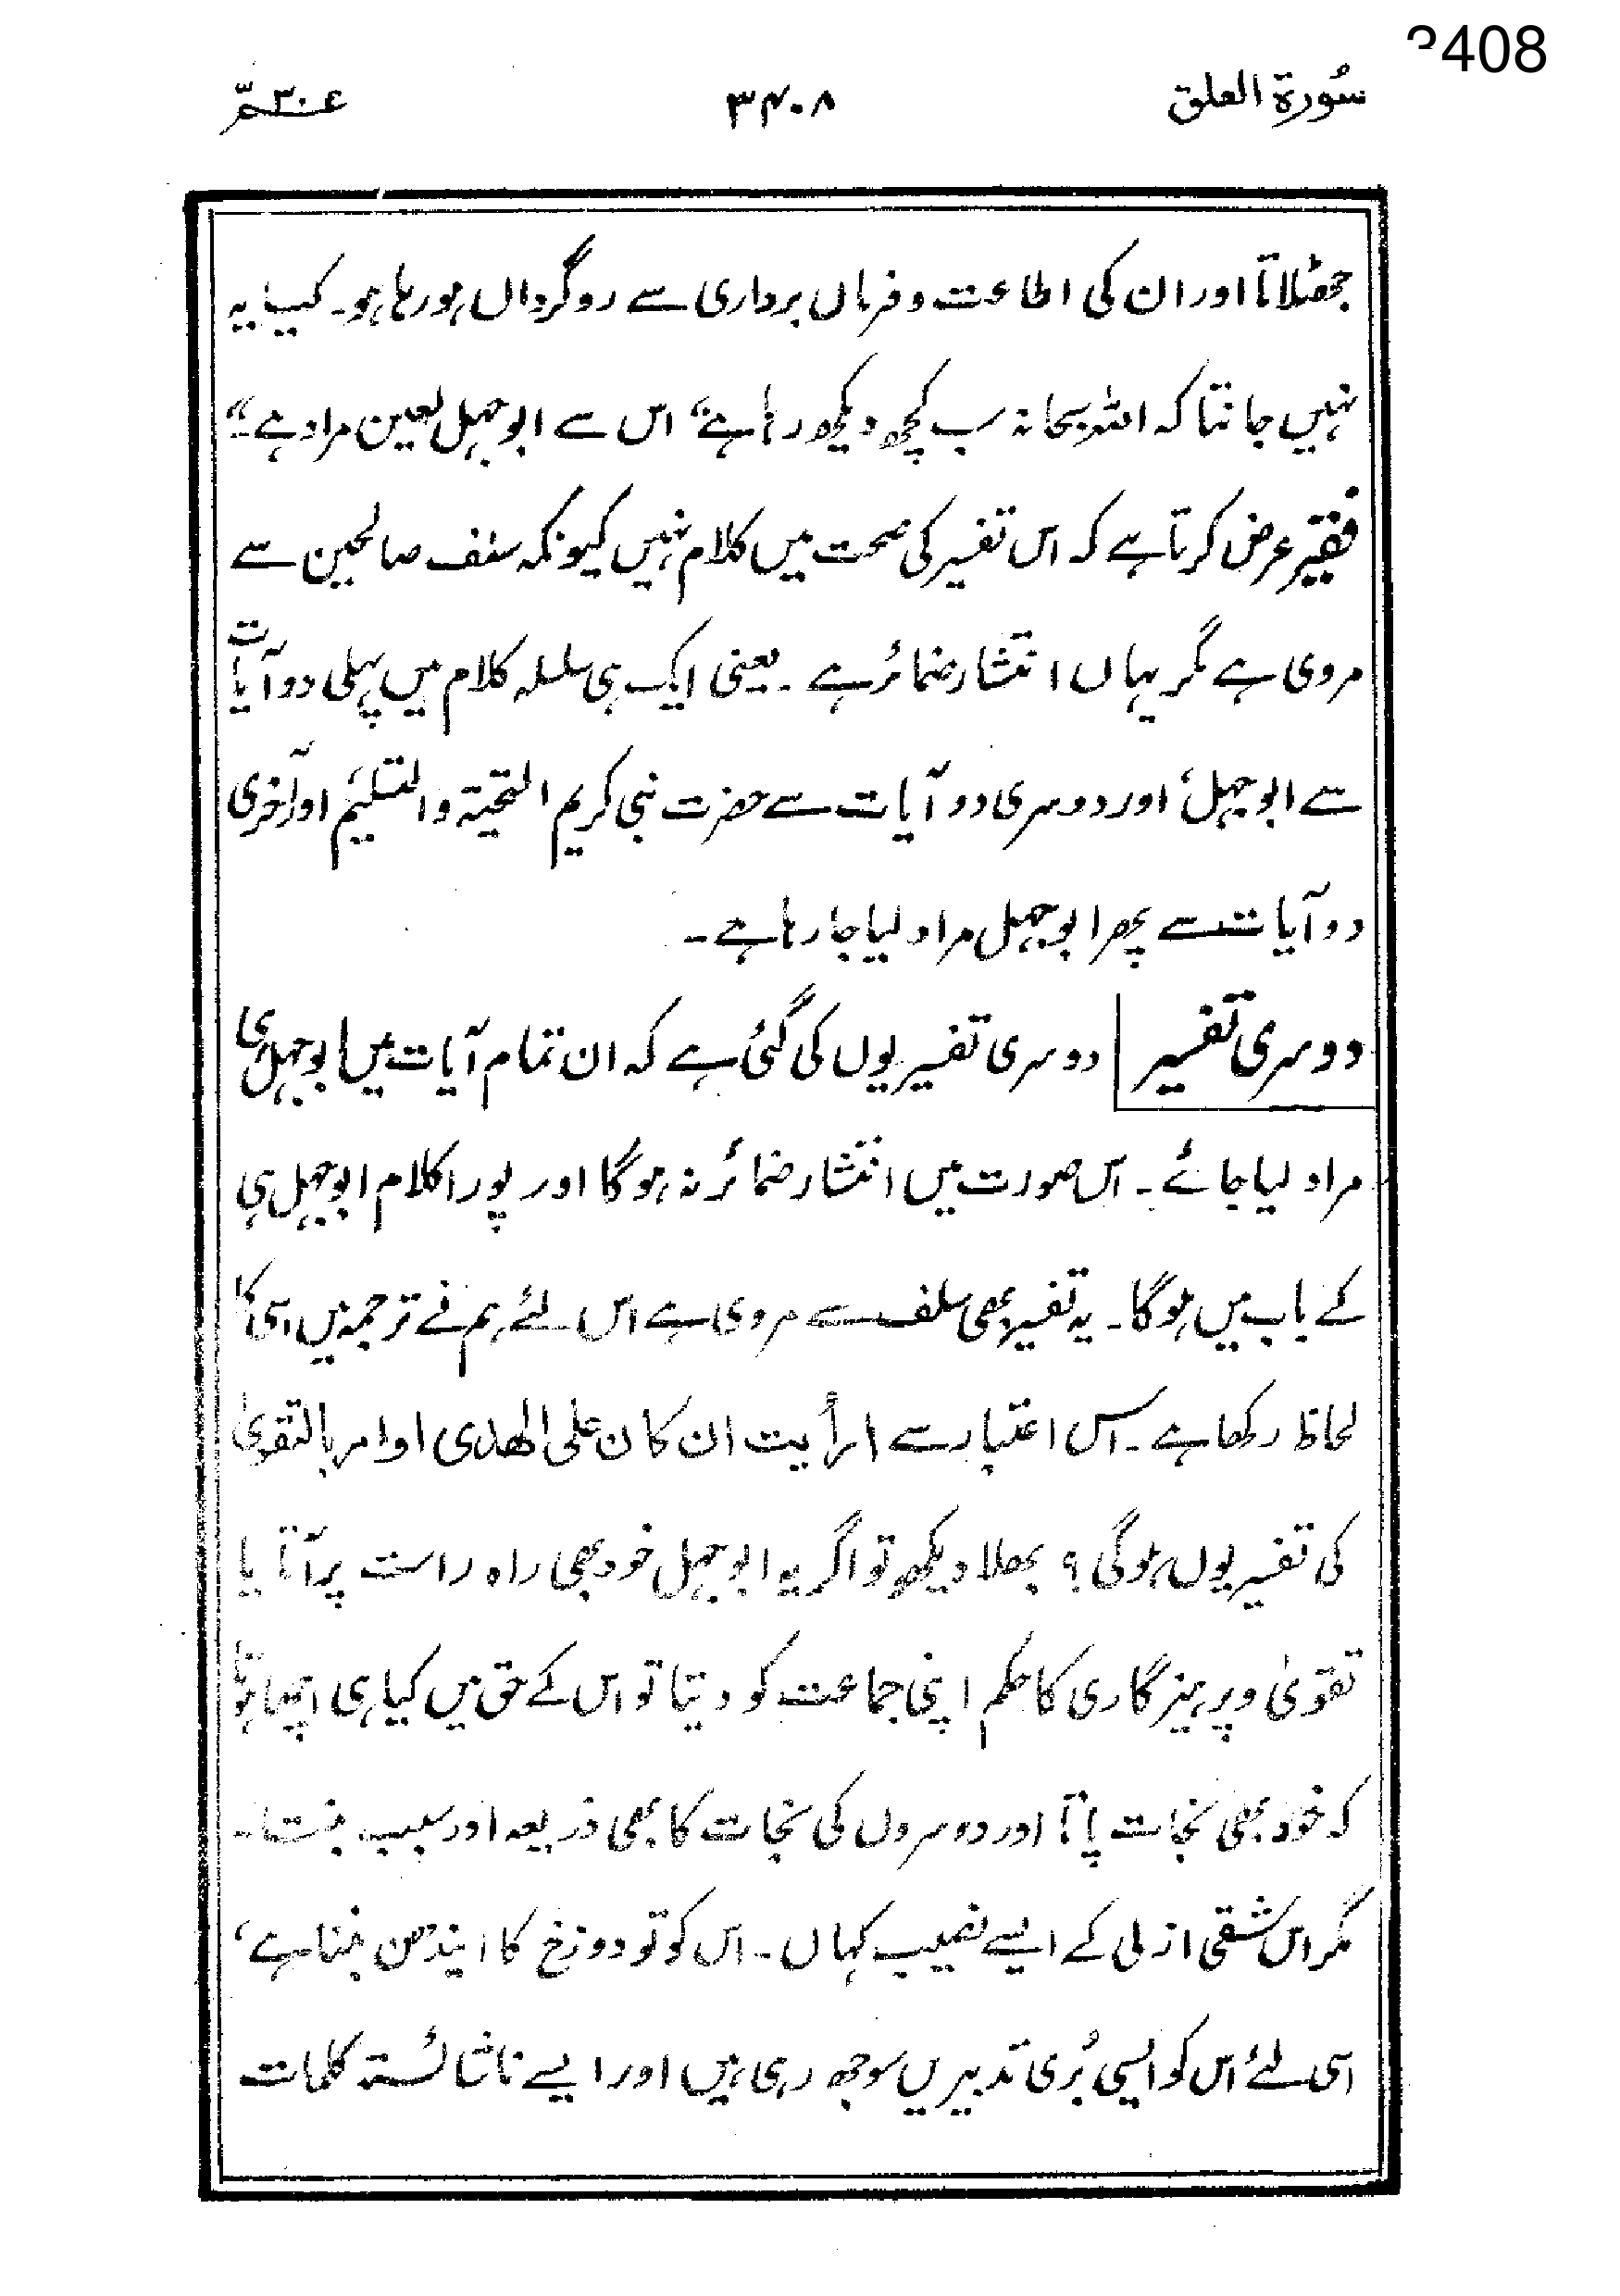 3408
سُورة العلق ۳۴۰۸ عمّ ۳۰
جھٹلاتا اور ان کی اطاعت و فرماں برداری سے روگرداں ہو رہا ہو۔ کیا یہ
نہیں جانتا کہ اللہ سبحانہ سب کچھ دیکھ رہا ہے‘‘ اس سے ابو جہل لعین مراد ہے۔‘‘
فقیر عرض کرتا ہے کہ اس تفسیر کی صحت میں کلام نہیں کیونکہ سلف صالحین سے
مروی ہے مگر یہاں انتشار ضمائر ہے۔ یعنی ایک ہی سلسلہ کلام میں پہلی دو آیات
سے ابو جہل، اور دوسری دو آیات سے حضرت نبی کریم التحیۃ والتسلیم اور آخری
دو آیات سے پھر ابو جہل مراد لیا جا رہا ہے۔
دوسری تفسیر دوسری تفسیر یوں کی گئی ہے کہ ان تمام آیات میں ابو جہل ہی
مراد لیا جائے۔ اس صورت میں انتشار ضمائر نہ ہو گا اور پورا کلام ابو جہل ہی
کے باب میں ہو گا۔ یہ تفسیر بھی سلف سے مروی ہے اس لئے ہم نے ترجمہ میں اسی کا
لحاظ رکھا ہے۔ اس اعتبار سے ارأیت ان کان علی الھدی او امر بالتقویٰ
کی تفسیر یوں ہو گی؟ بھلا دیکھو تو اگر یہ ابو جہل خود بھی راہ راست پر آتا یا
تقویٰ و پرہیز گاری کا حکم اپنی جماعت کو دیتا تو اس کے حق میں کیا ہی اچھا ہوتا
کہ خود بھی نجات پاتا اور دوسروں کی نجات کا بھی ذریعہ اور سبب بنتا۔
مگر اس شقی ازلی کے ایسے نصیب کہاں۔ اس کو تو دوزخ کا ایندھن بننا ہے،
اسی لئے اس کو ایسی بُری تدبیریں سوجھ رہی ہیں اور ایسے ناشائستہ کلمات